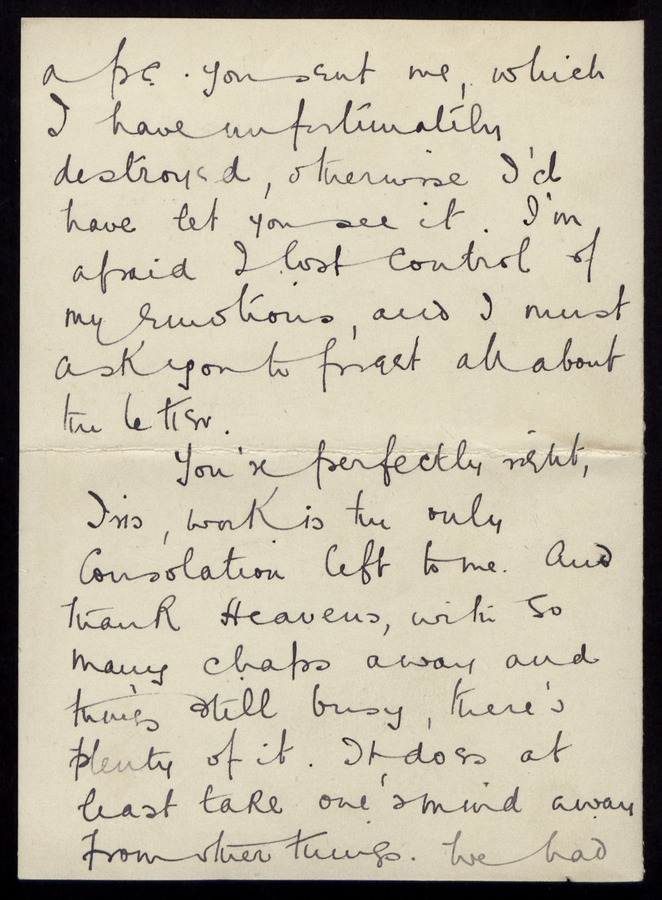 a p.c. you sent me, which
I have unfortunately
destroyed, otherwise I'd
have let you see it. I'm
afraid I lost control of
my emotions, and I must
ask you to forget all about
the letter.
You're perfectly right,
Iris, work is the only
Consolation left to me. And
thank Heavens, with so
many chaps away and
things still busy, there's
plenty of it. It does at
least take one's mind away
from other things. We had